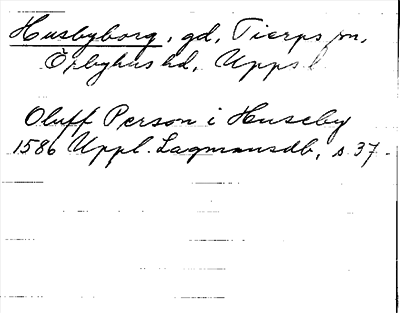 Husbyborg, gd, Tierps sn,
Örbyhus hd, Upps l
Oluff Person i Huseby
1586 Uppl. Lagmansdb, s 37.